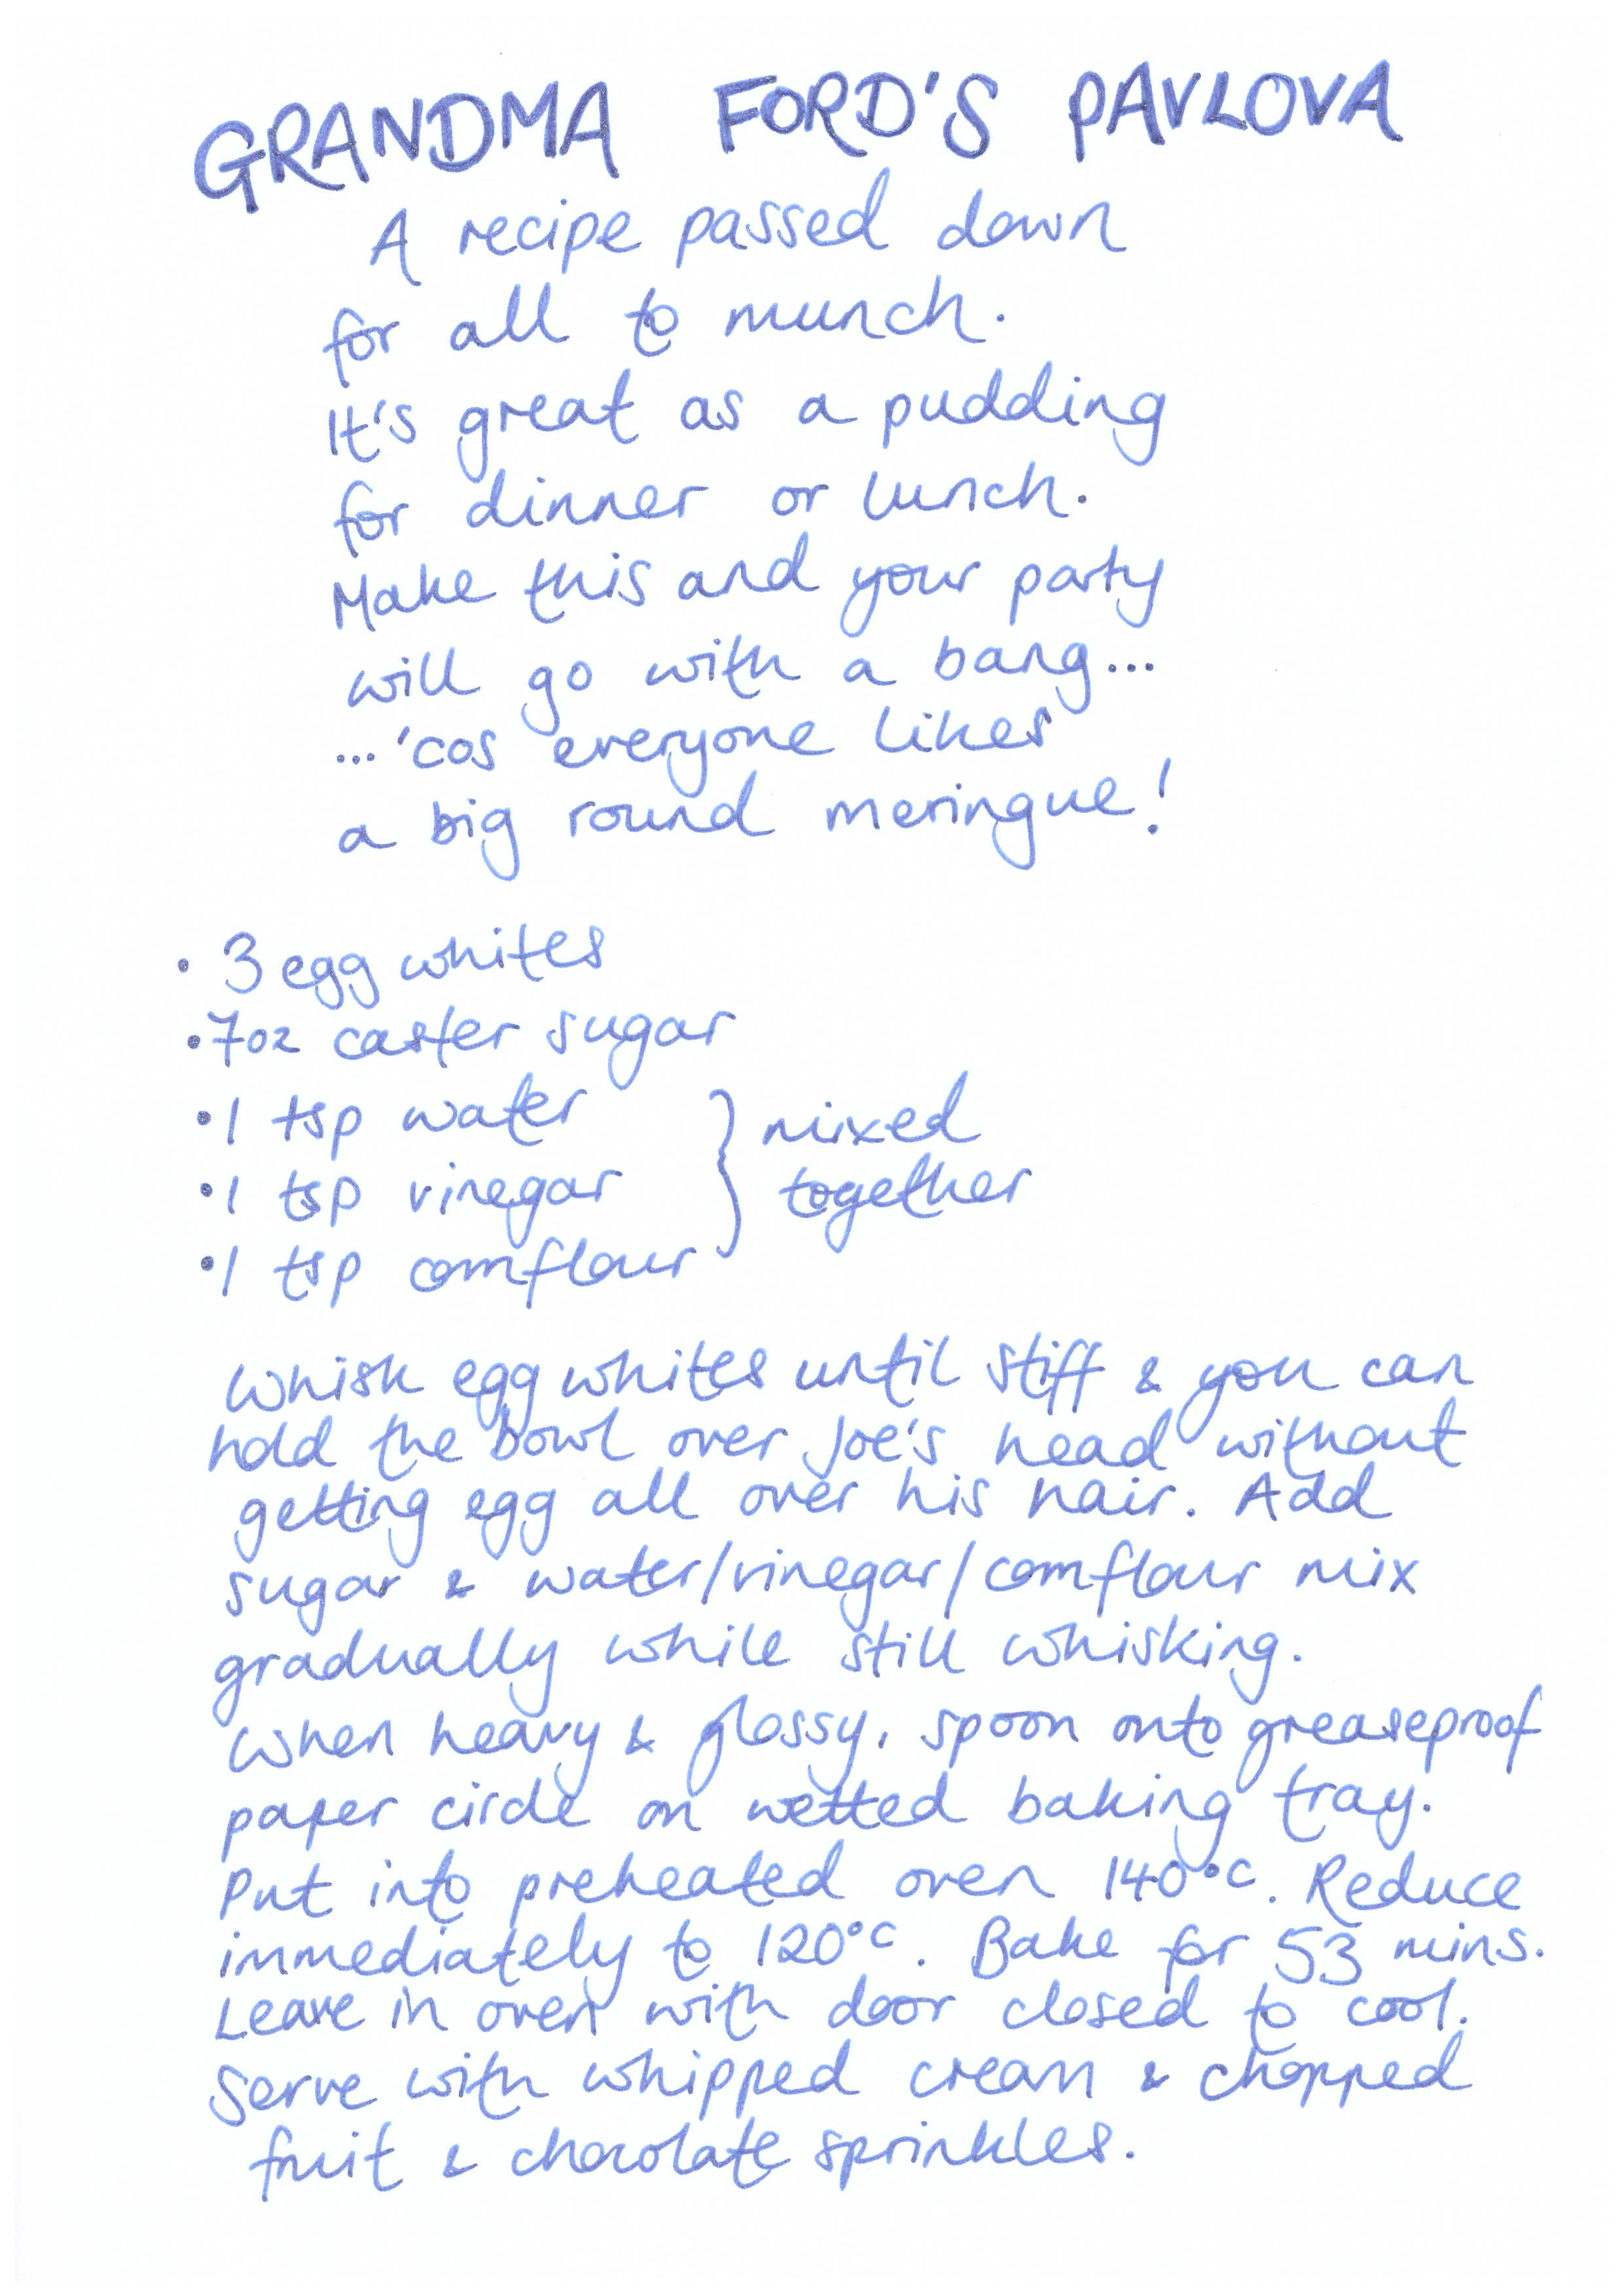 GRANDMA FORD'S PAVLOVA
A recipe passed down
for all to munch.
It's great as a pudding
for dinner or lunch.
Make this and your party
will go with a bang...
...'cos everyone likes
a big round meringue!
• 3 egg whites
• 7oz caster sugar
• 1 tsp water } mixed
• 1 tsp vinegar } together
• 1 tsp cornflour
Whisk egg whites until stiff & you can
hold the bowl over Joe's head without
getting egg all over his hair. Add
sugar & water/vinegar/cornflour mix
gradually while still whisking.
When heavy & glossy, spoon onto greaseproof
paper circle on wetted baking tray.
Put into preheated oven 140°C. Reduce
immediately to 120°C. Bake for 53 mins.
Leave in oven with door closed to cool.
Serve with whipped cream & chopped
fruit & chocolate sprinkles.